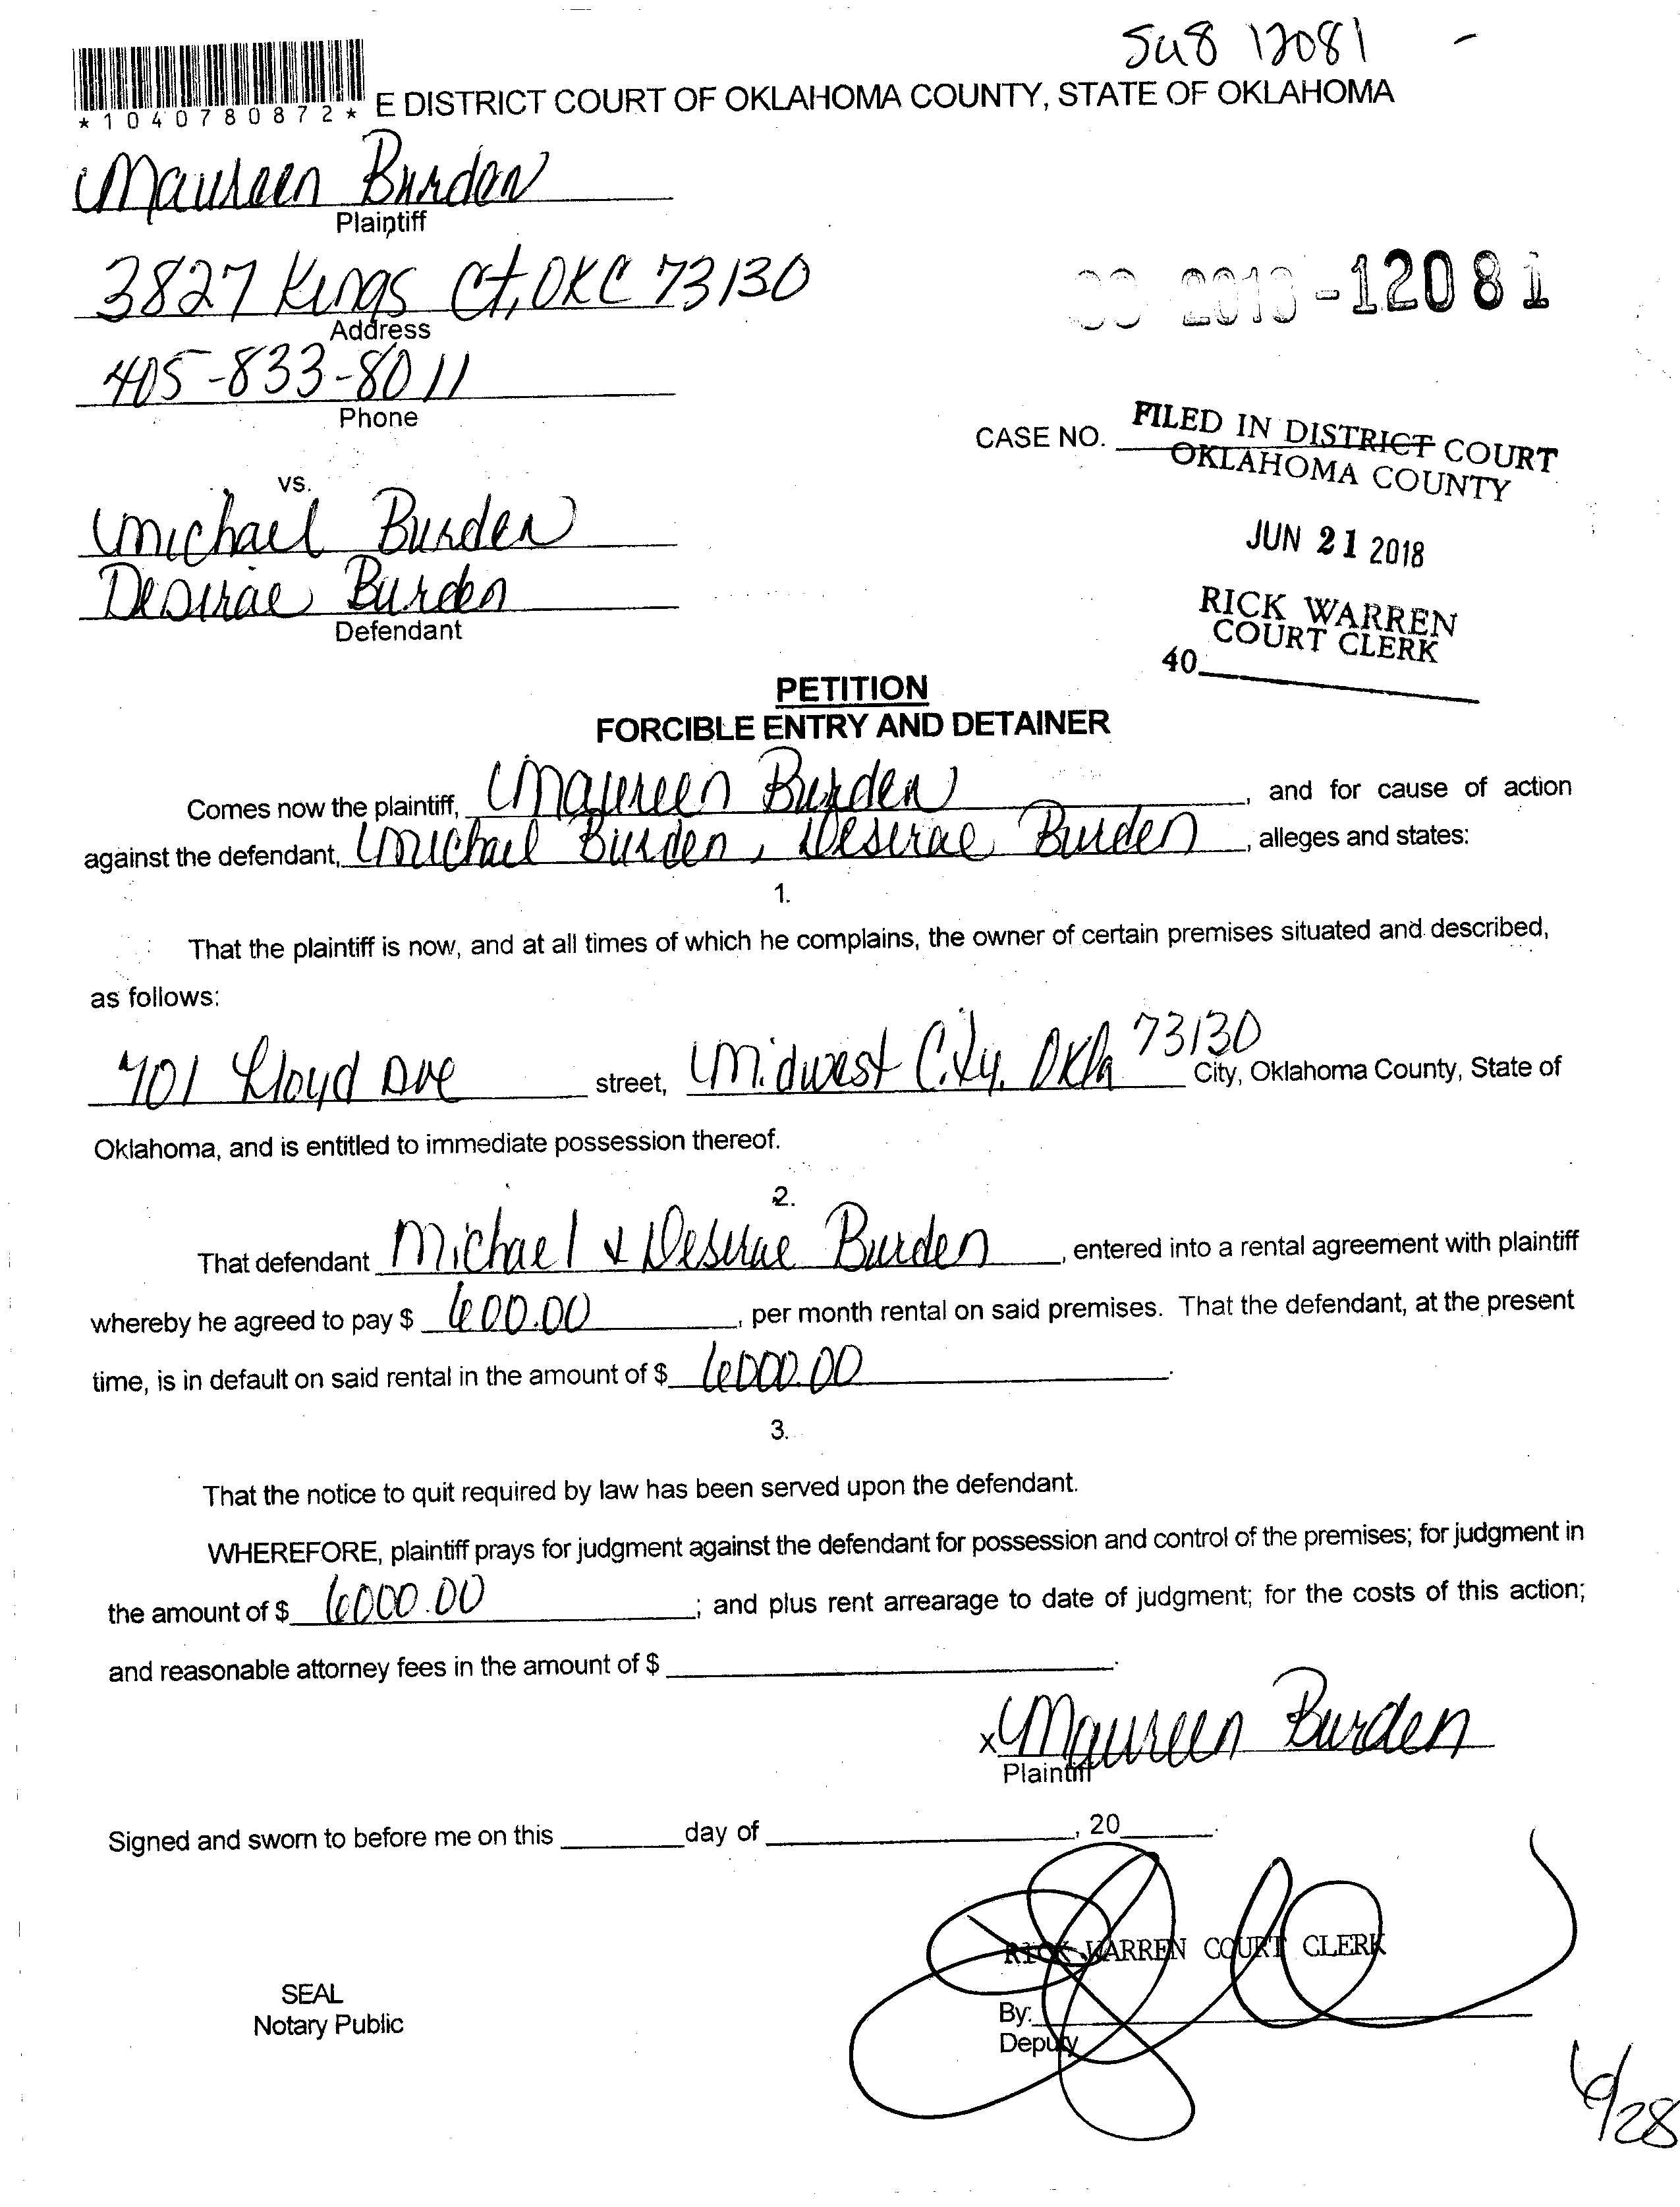 Su8 12081
*1040780872* E DISTRICT COURT OF OKLAHOMA COUNTY, STATE OF OKLAHOMA
Maureen Burden
Plaintiff
3827 Kings Ct, OKC 73130
Address
-12081
405-833-8011
Phone
CASE NO.
FILED IN DISTRICT COURT
OKLAHOMA COUNTY
JUN 21 2018
RICK WARREN
COURT CLERK
40
vs.
Michael Burden
Desirae Burden
Defendant
PETITION
FORCIBLE ENTRY AND DETAINER
Comes now the plaintiff, Maureen Burden, and for cause of action
against the defendant, Michael Burden, Desirae Burden, alleges and states:
1.
That the plaintiff is now, and at all times of which he complains, the owner of certain premises situated and described,
as follows:
701 Lloyd Ave street, Midwest City, Okla 73130 City, Oklahoma County, State of
Oklahoma, and is entitled to immediate possession thereof.
2.
That defendant Michael & Desirae Burden, entered into a rental agreement with plaintiff
whereby he agreed to pay $ 600.00, per month rental on said premises. That the defendant, at the present
time, is in default on said rental in the amount of $ 6000.00.
3.
That the notice to quit required by law has been served upon the defendant.
WHEREFORE, plaintiff prays for judgment against the defendant for possession and control of the premises; for judgment in
the amount of $ 6000.00; and plus rent arrearage to date of judgment; for the costs of this action;
and reasonable attorney fees in the amount of $ .
x Maureen Burden
Plaintiff
Signed and sworn to before me on this day of , 20 .
RICK WARREN COURT CLERK
SEAL
Notary Public
By:
Deputy
6/28